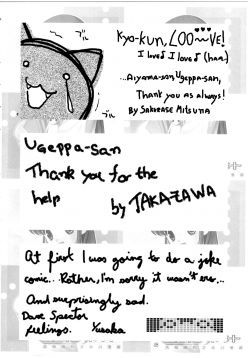 Kyo-kun, LOO~VE!
I love♪ I love♪ (ham)
...Aiyama-san Ugeppa-san,
Thank you as always!
By Sakurase Mitsuna
Ugeppa-san
Thank you for the
help
by TAKAZAWA
At first I was going to do a joke
comic.. Rather, I'm sorry it wasn't ero...
And surprisingly sad.
Dave Spector
feelings.